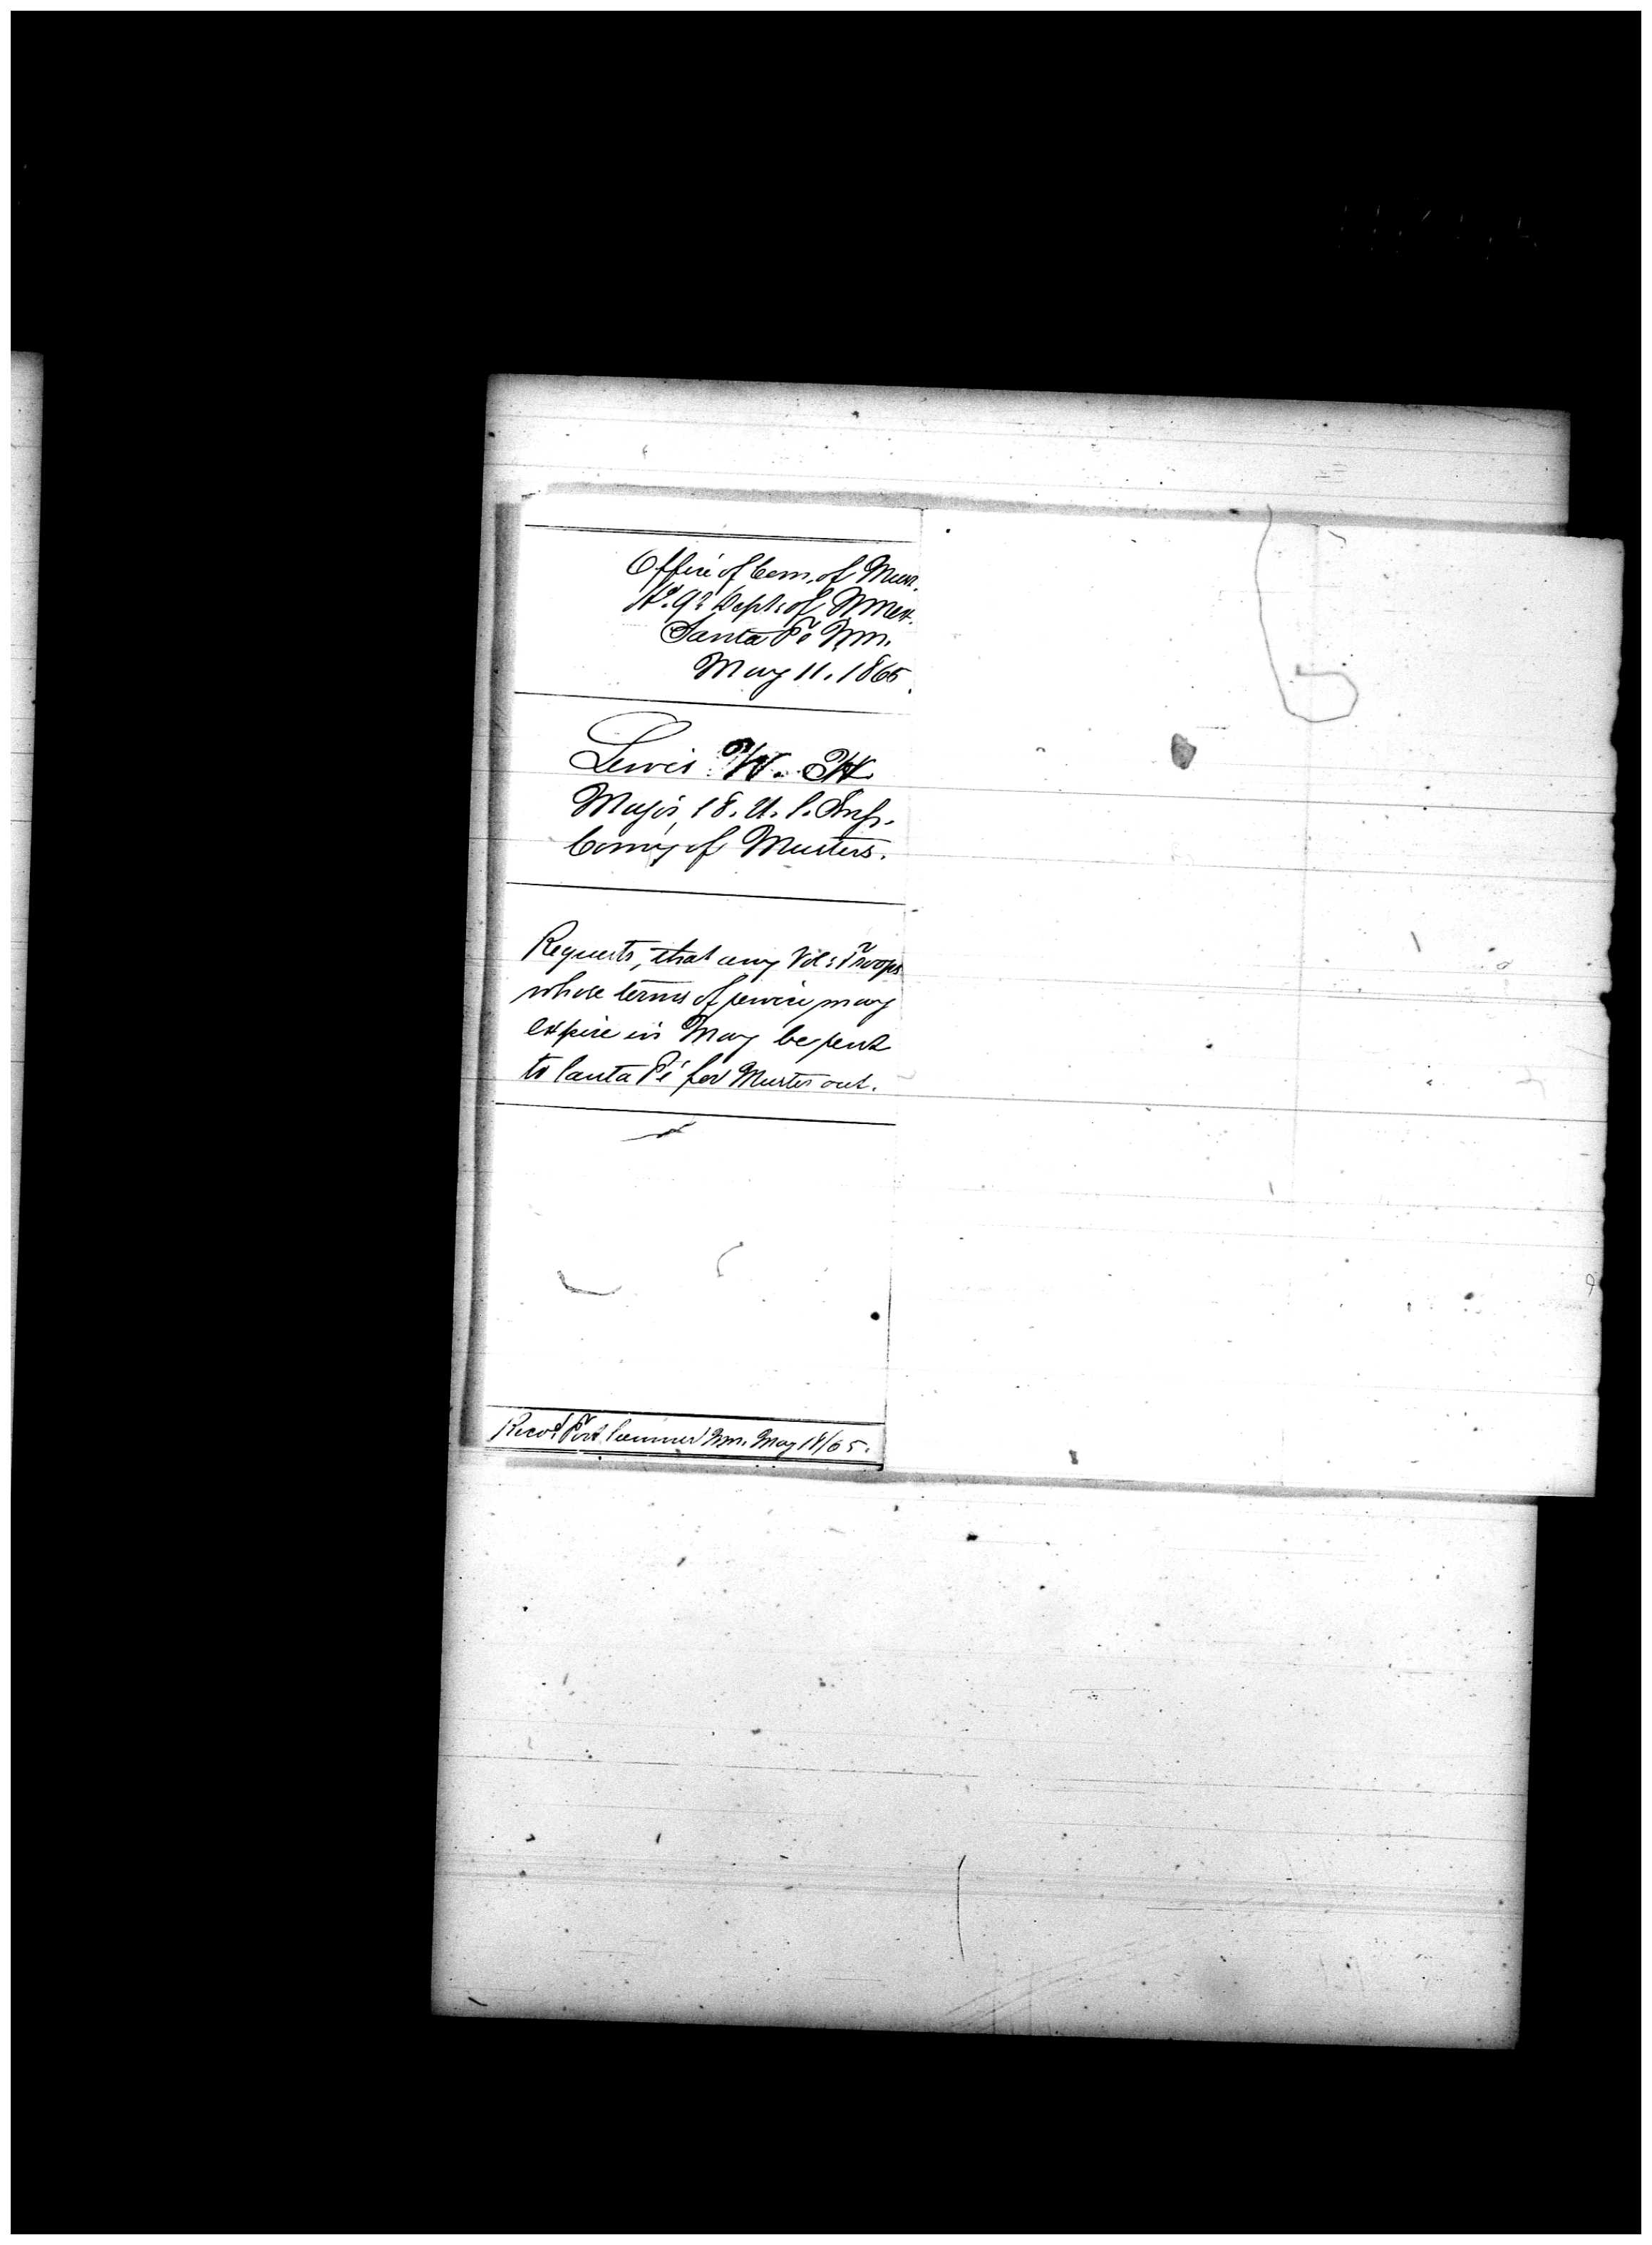 Office of Com. of Mus.
Hd. Qs Dept: of N Mex.
Santa Fé N.M.
May 11. 1865.
Lewis W. H.
Major 18. U. S. Inf.
Com'y of Musters.
Requests, that any Vol: Troops
whose terms of service may
expire in May be sent
to Santa Fé for Muster out.
Recd. Fort Sumner N.M. May 18/65.